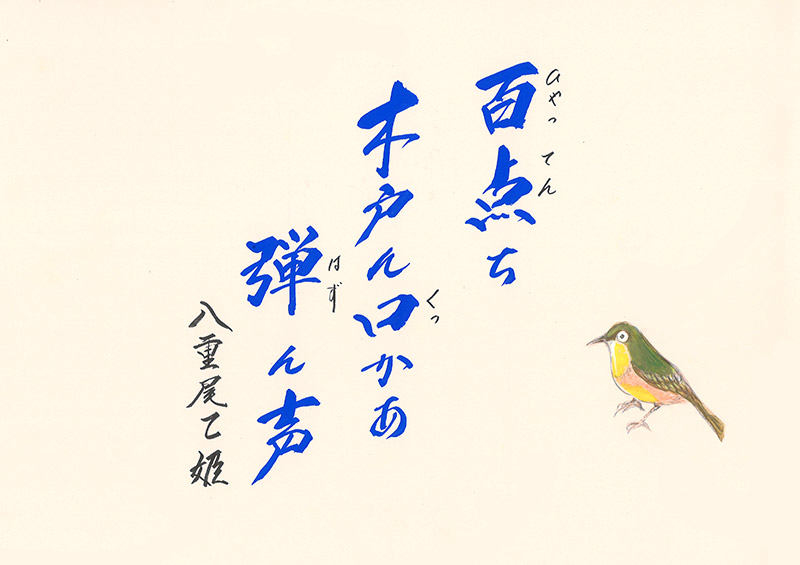 百点ち
ひゃってん
木戸ん口かあ
くっ
弾ん声
はず
八重尾乙姫